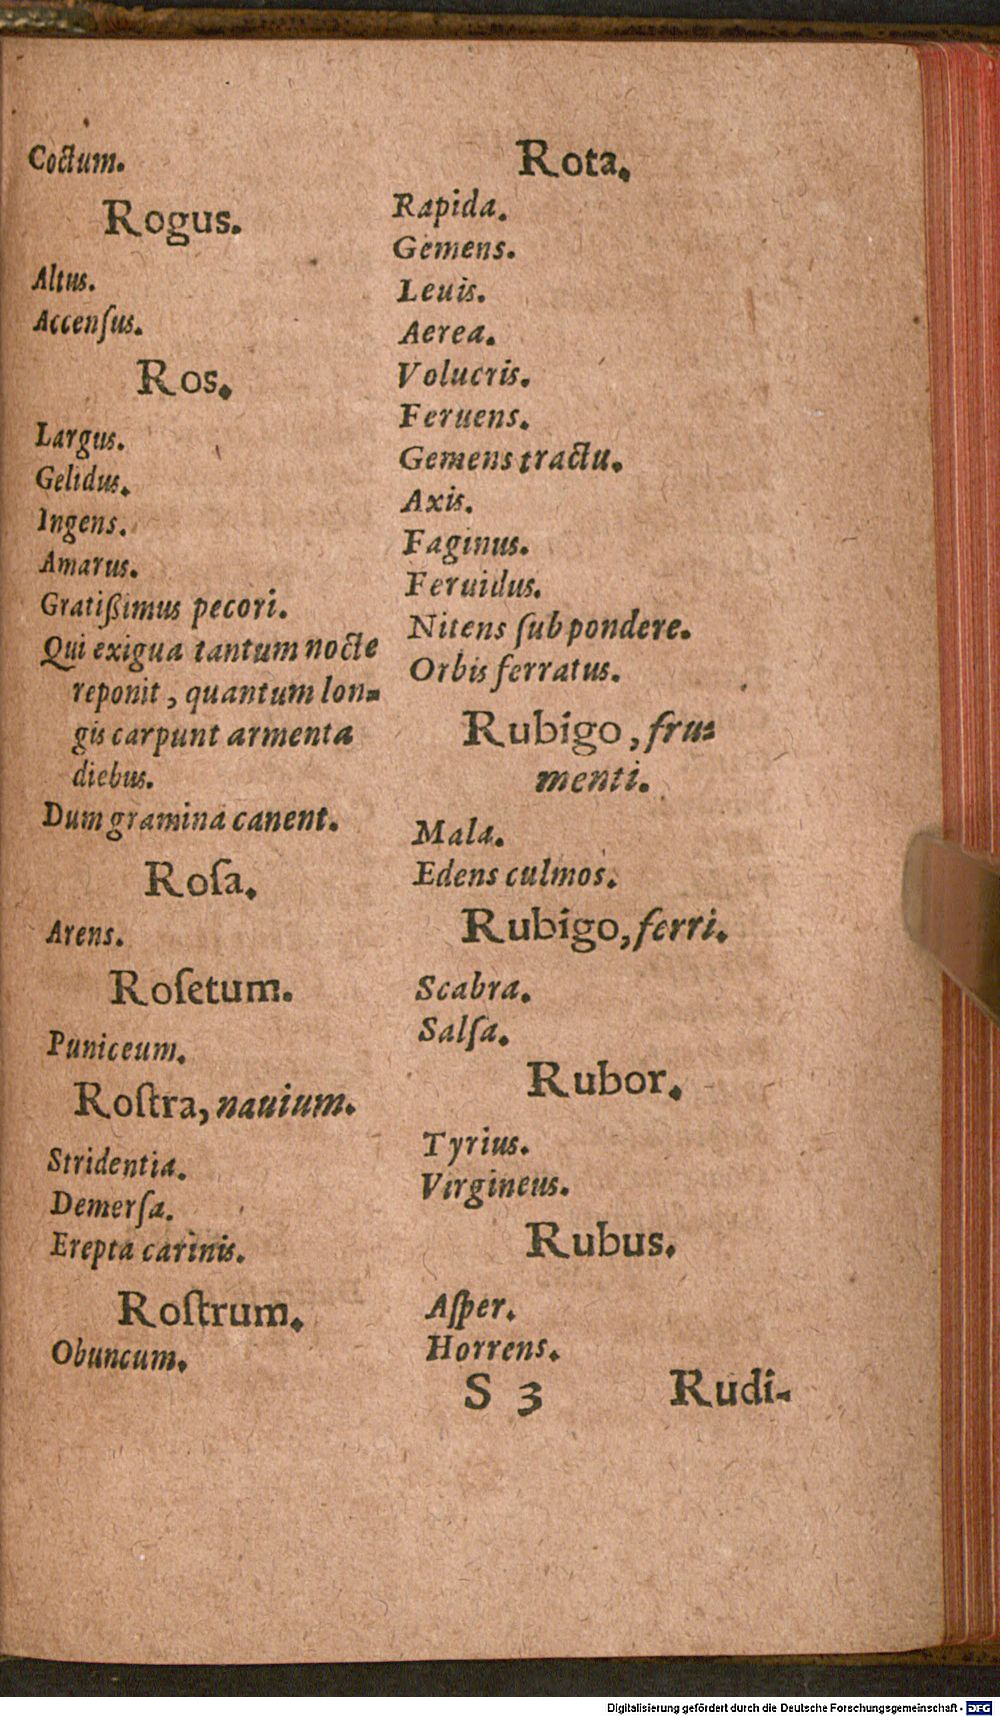 Coctum.
Rogus.
Altus.
Accenſus.
Ros.
Largus.
Gelidus.
Ingens.
Amarus.
Gratißimus pecori.
Qui exigua tantum nocte
reponit, quantum lon-
gis carpunt armenta
diebus.
Dum gramina canent.
Roſa.
Arens.
Roſetum.
Puniceum.
Roſtra, nauium.
Stridentia.
Demerſa.
Erepta carinis.
Roſtrum.
Obuncum.
Rota.
Rapida.
Gemens.
Leuis.
Aerea.
Volucris.
Feruens.
Gemens tractu.
Axis.
Faginus.
Feruidus.
Nitens ſub pondere.
Orbis ferratus.
Rubigo, fru-
menti.
Mala.
Edens culmos.
Rubigo, ferri.
Scabra.
Salſa.
Rubor.
Tyrius.
Virgineus.
Rubus.
Aſper.
Horrens.
S 3 Rudi-
Digitalisierung gefördert durch die Deutsche Forschungsgemeinschaft - DFG